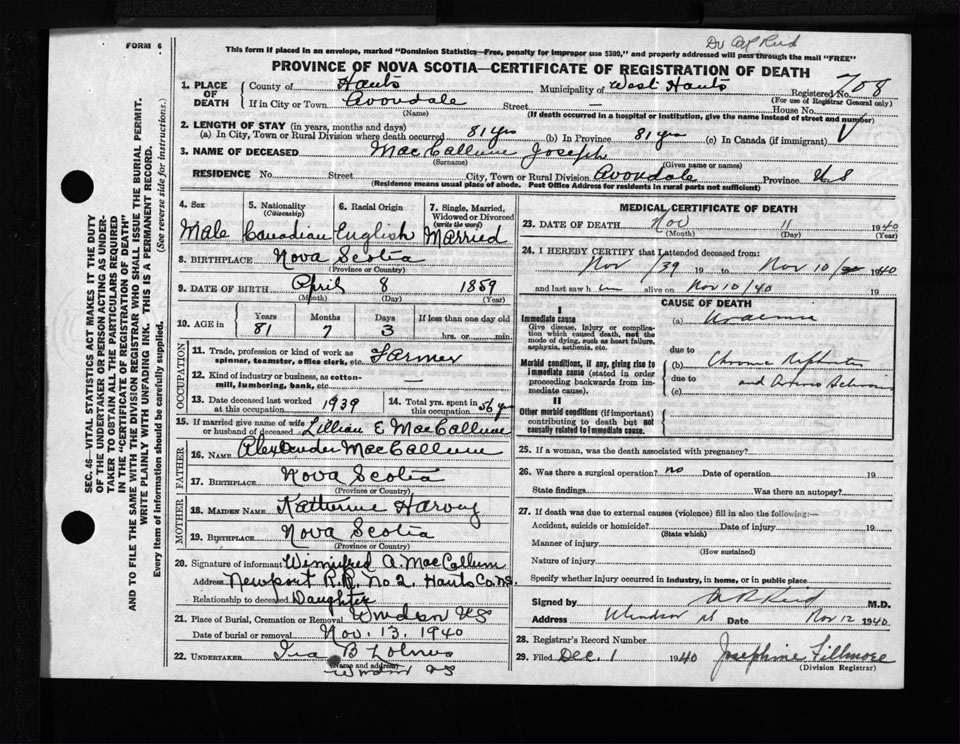 Dr A R Reid
FORM 6
This form if placed in an envelope, marked "Dominion Statistics—Free, penalty for improper use $300," and properly addressed will pass through the mail "FREE"
PROVINCE OF NOVA SCOTIA—CERTIFICATE OF REGISTRATION OF DEATH
SEC. 46—VITAL STATISTICS ACT MAKES IT THE DUTY
OF THE UNDERTAKER OR PERSON ACTING AS UNDER-
TAKER TO OBTAIN ALL THE PARTICULARS REQUIRED
IN THE "CERTIFICATE OF REGISTRATION OF DEATH"
AND TO FILE THE SAME WITH THE DIVISION REGISTRAR WHO SHALL ISSUE THE BURIAL PERMIT.
WRITE PLAINLY WITH UNFADING INK. THIS IS A PERMANENT RECORD.
Every item of information should be carefully supplied. (See reverse side for instructions.)
1. PLACE OF DEATH County of Hants Municipality of West Hants Registered No. 708
(For use of Registrar General only)
If in City or Town Avondale Street — House No.
(Name) (If death occurred in a hospital or institution, give the name instead of street and number)
2. LENGTH OF STAY (in years, months and days)
(a) In City, Town or Rural Division where death occurred 81 yrs (b) In Province 81 yrs (c) In Canada (if immigrant) V
3. NAME OF DECEASED MacCallum Joseph
(Surname) (Given name or names)
RESIDENCE No. Street City, Town or Rural Division Avondale Province N S
(Residence means usual place of abode. Post Office Address for residents in rural parts not sufficient)
4. Sex 5. Nationality (Citizenship) 6. Racial Origin 7. Single, Married, Widowed or Divorced (write the word)
Male Canadian English Married
8. BIRTHPLACE Nova Scotia
(Province or Country)
9. DATE OF BIRTH April 8 1859
(Month) (Day) (Year)
10. AGE in Years Months Days If less than one day old
81 7 3 hrs. or min.
OCCUPATION
11. Trade, profession or kind of work as spinner, teamster, office clerk, etc. Farmer
12. Kind of industry or business, as cotton-mill, lumbering, bank, etc. —
13. Date deceased last worked at this occupation 1939 14. Total yrs. spent in this occupation 56 yrs
15. If married give name of wife or husband of deceased Lillian E MacCallum
FATHER
16. Name Alexander MacCallum
17. Birthplace Nova Scotia
(Province or Country)
MOTHER
18. Maiden Name Katherine Harvey
19. Birthplace Nova Scotia
(Province or Country)
20. Signature of informant Winnifred A. MacCallum
Address Newport R.R. No 2. Hants Co. N.S.
Relationship to deceased Daughter
21. Place of Burial, Cremation or Removal Windsor N S
Date of burial or removal Nov. 13. 1940
22. UNDERTAKER Ira B
(Name and address)
Windsor N S
MEDICAL CERTIFICATE OF DEATH
23. DATE OF DEATH Nov 11 1940
(Month) (Day) (Year)
24. I HEREBY CERTIFY that I attended deceased from:
Nov /39 19 to Nov 10/ 1940
and last saw h im alive on Nov 10/40 19
CAUSE OF DEATH
Immediate cause
Give disease, injury or complication which caused death, not the mode of dying, such as heart failure, asphyxia, asthenia, etc.
(a) Uraemia
due to
Morbid conditions, if any, giving rise to immediate cause (stated in order proceeding backwards from immediate cause).
(b) Chronic Nephritis
due to and
(c)
II
Other morbid conditions (if important) contributing to death but not causally related to immediate cause.
25. If a woman, was the death associated with pregnancy?
26. Was there a surgical operation? no Date of operation 19
State findings Was there an autopsy?
27. If death was due to external causes (violence) fill in also the following:—
Accident, suicide or homicide? Date of injury 19
(State which)
Manner of injury
(How sustained)
Nature of injury
Specify whether injury occurred in industry, in home, or in public place
Signed by A R Reid M.D.
Address Windsor NS Date Nov 12 1940
28. Registrar's Record Number
29. Filed Dec. 1 1940 Josephine Fillmore
(Division Registrar)